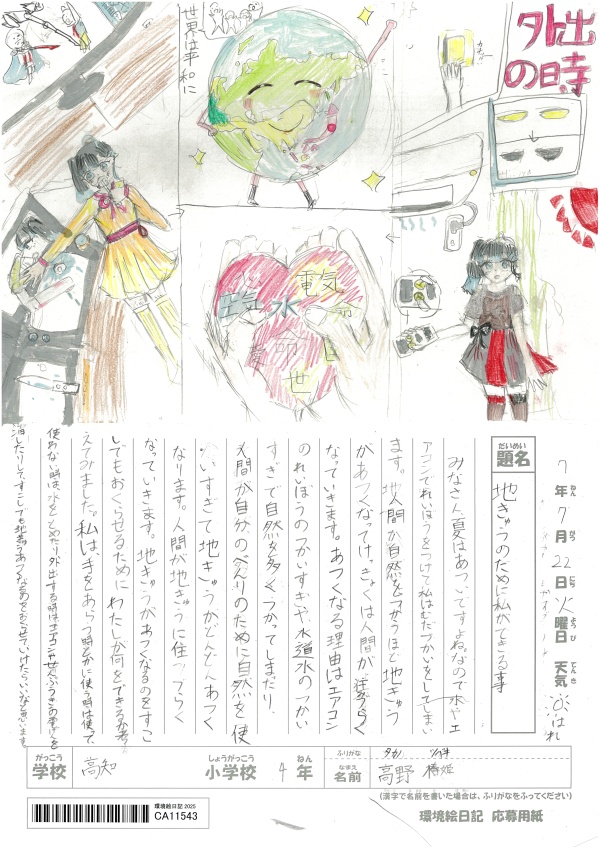 外出
の時
カチッ
世界は平和に
空気
水
電気
命
世
7年7月22日火曜日 天気 はれ
ねん がつ にち ようび てんき
だいめい
題名
地きゅうのために私ができる事
みなさん夏はあついですよね。なので水やエ
アコンでれいぼうをつけて私はむだづかいをしてしまい
ます。地人間が自然をつかうほど地きゅう
があつくなってけっきょくは人間が住づらく
なっていきます。あつくなる理由はエアコン
のれいぼうのつかいすぎや、水道水のつかい
すぎで自然を多くつかってしまだり、
人間が自分のべんりのために自然を使
いすぎて地きゅうがどんどんあつく
なります。人間が地きゅうに住づらく
なっていきます。地きゅうがあつくなるのをすこ
しでもおくらせるために わたしが何をできるか考
えてみました。私は、手をあらう時とかに使う時は使って、
使わない時は水をとめたり外出する時はエアコンやせんぷうきの電げんを
消したりして、すこしでも地きゅうがあつくなるのをおくらせていけたらいいなと思います。
がっこう
学校
高知
しょうがっこう
小学校
4
ねん
年
ふりがな
なまえ
名前
タカノ ツバキ
高野 椿姫
(漢字で名前を書いた場合は、ふりがなをふってください)
環境絵日記 2025
CA11543
環境絵日記 応募用紙